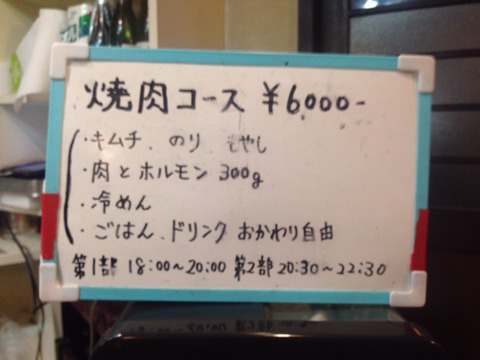 焼肉コース ¥6,000-
・キムチ、のり もやし
・肉とホルモン 300g
・冷めん
・ごはん、ドリンク おかわり自由
第1部 18:00~20:00 第2部 20:30~22:30